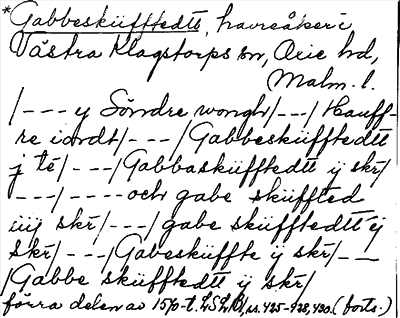 *Gabbesküfftedtt, havreåker i
Västra Klagstorps sn, Oxie hd,
Malm. l.
/---y Söndre wongh/---/Hauff-
re iordt/---/Gabbesküfftedtt
j té/---/Gabbasküfftedtt ÿ skr̃/
---/----och gabe sküffted
iiij skr̃/---/gabe sküfftedtt ÿ
skr̃/---/Gabesküffte ÿ skr̃/---
/Gabbe sküfftedtt ÿ skr̃/
förra delen av 1570-t. ss. 425-428, 430. (forts.)